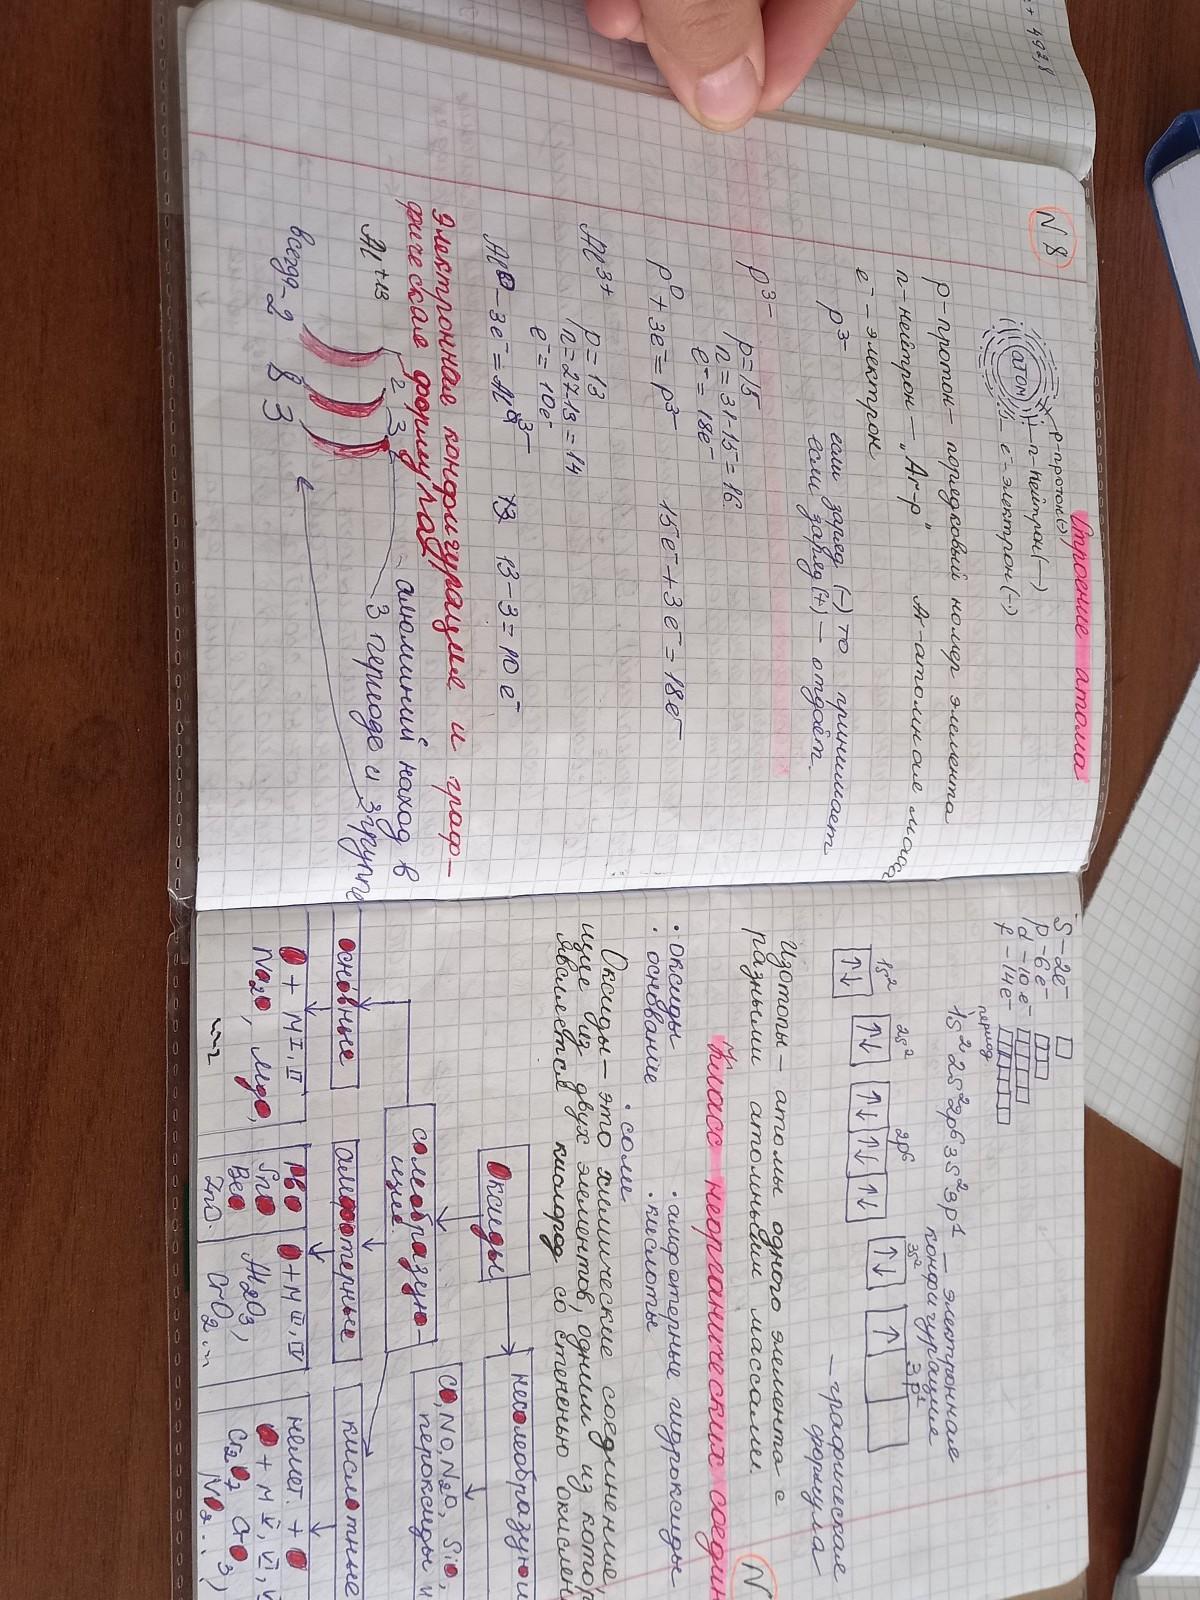 2 + 49 2,8
N 8
Строение атома
атом
p-протон(+)
n-нейтрон(—)
e-электрон(-)
p-протон- порядковый номер элемента
n-нейтрон — „Ar-p" Ar-атомная масса
e⁻ - электрон
p³⁻ если заряд (-) то принимает
если заряд (+) — отдаёт.
p³⁻ p=15
n=31-15=16
e⁻=18e⁻
p⁰+3e⁻=p³⁻ 15e⁻+3e⁻=18e⁻
Al³⁺ p=13
n=27-13=14
e⁻=10e⁻
Al⁰-3e⁻=Al³⁻ 13-3=10e⁻
Электронная конфигурация и граф-
фическая формула
Al +13 - алюминий наход в
3 периоде и 3 группе
всегда-2 8 3
S-2e⁻
p-6e⁻
d-10e⁻
f-14e⁻
период
1s²2s²2p⁶3s²3p¹ — электронная
конфигурация.
1s² 2s² 2p⁶ 3s² 3p¹
— графическая
формула
Изотопы - атомы одного элемента с
разными атомными массами.
N
Класс неорганических соедин
• оксиды • амфотерные гидроксиды
• основание • кислоты
• соли
Оксиды - это химические соединение,
щие из двух элементов, одним из котор
является кислород со степенью окислен
Оксиды
солеобразую-
щие
несолеобразующ
CO, NO, N₂O, SiO,
пероксиды и
основные
амфотерные
кислотные
O + M I, II
Na₂O, MgO,
SnO
BeO
ZnO.
O + M III, IV
Al₂O₃,
CrO₂...
немет. + O
O + M V, VI, V
NO₂...